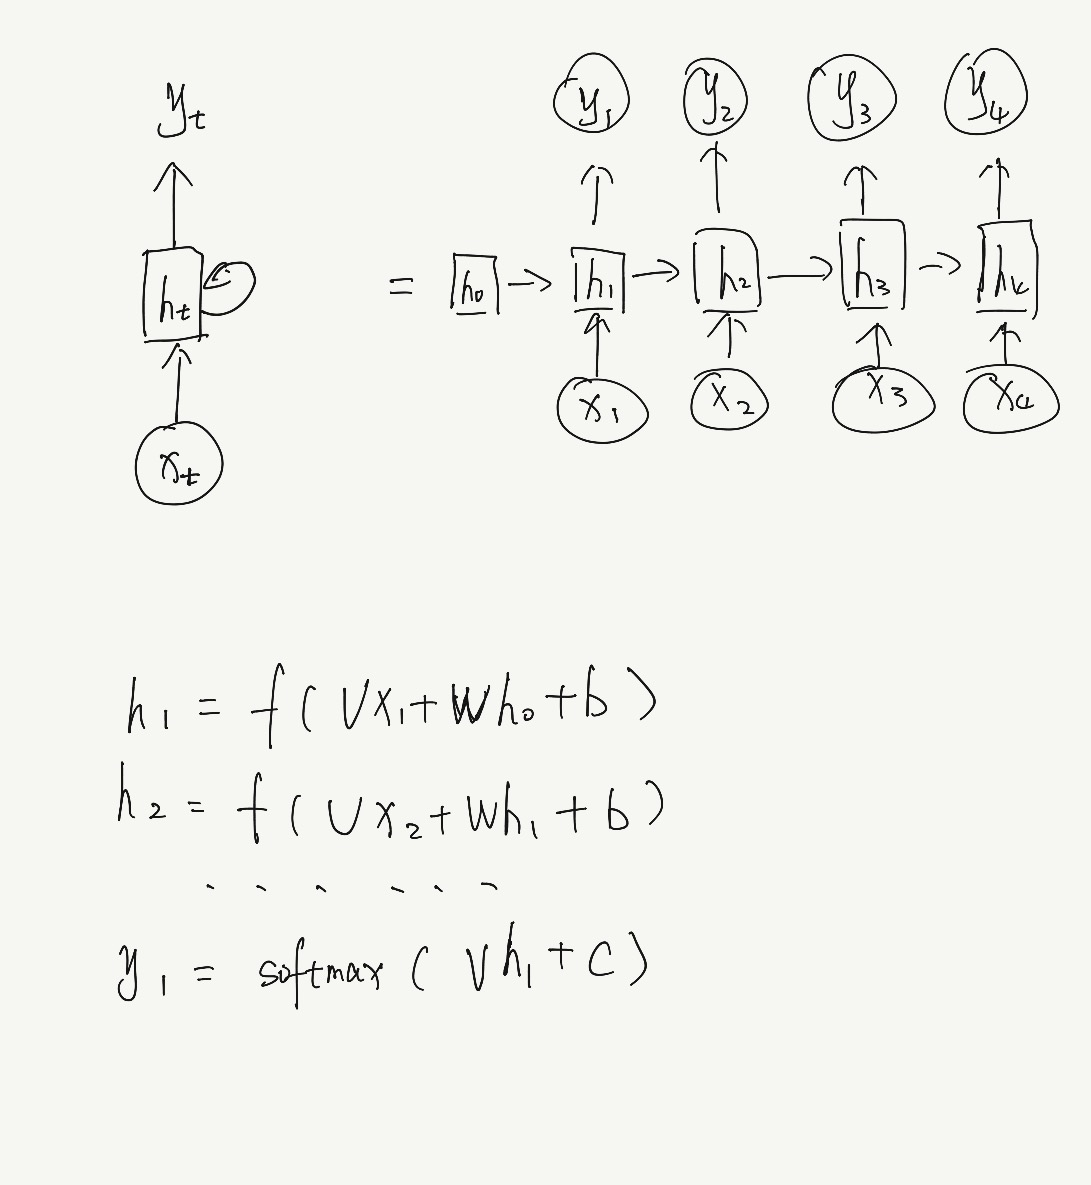 yt y1 y2 y3 y4
ht = h0 → h1 → h2 → h3 → h4
xt x1 x2 x3 x4
h1 = f( Ux1 + Wh0 + b )
h2 = f( Ux2 + Wh1 + b )
. . . . . .
y1 = softmax ( Vh1 + C )